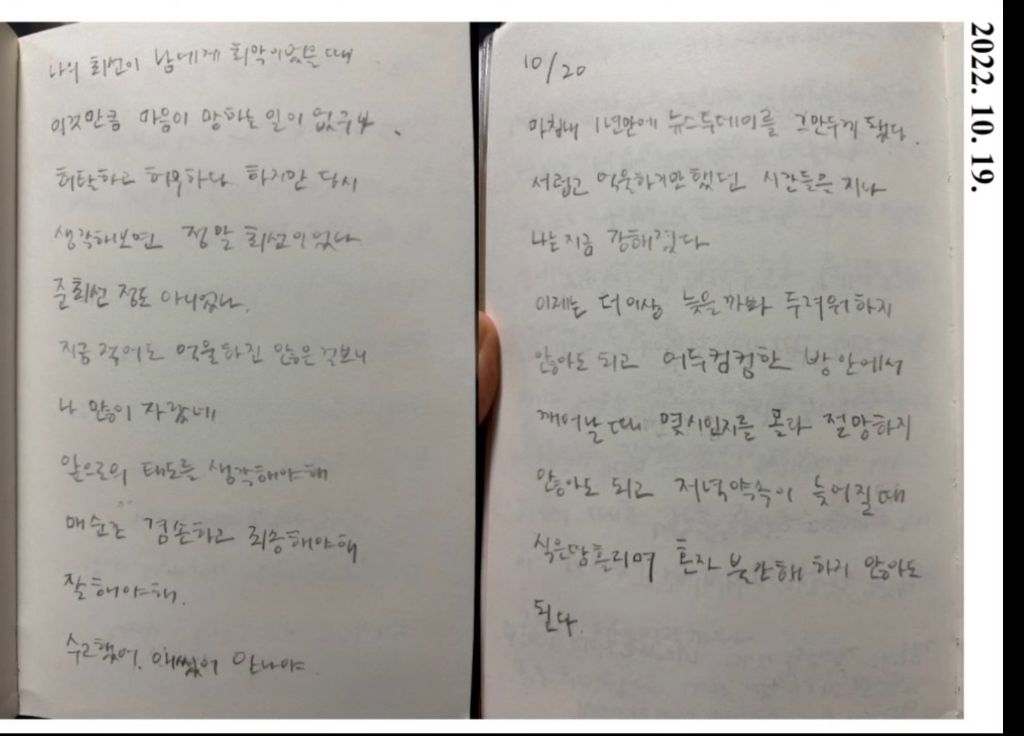 나의 최선이 남에게 최악이었을 때
이것만큼 마음이 망하는 일이 없구나.
허탈하고 허무하다 하지만 당시
생각해보면 정말 최선이었나
준최선 정도 아니었나.
지금 적어도 억울하진 않은 걸보니
나 많이 자랐네
앞으로의 태도를 생각해야해
매순간 겸손하고 죄송해야해
잘해야해.
수고했어. 애썼어 안나야.
10/20
마침내 1년만에 뉴스투데이를 그만두게 됐다.
서럽고 억울하기만했던 시간들은 지나
나는지금 강해졌다
이제는 더이상 늦을까봐 두려워하지
않아도 되고 어두컴컴한 방안에서
깨어날때 몇시인지를 몰라 절망하지
않아도 되고 저녁약속이 늦어질때
식은땀흘리며 혼자 불안해 하지 않아도
된다
2022. 10. 19.